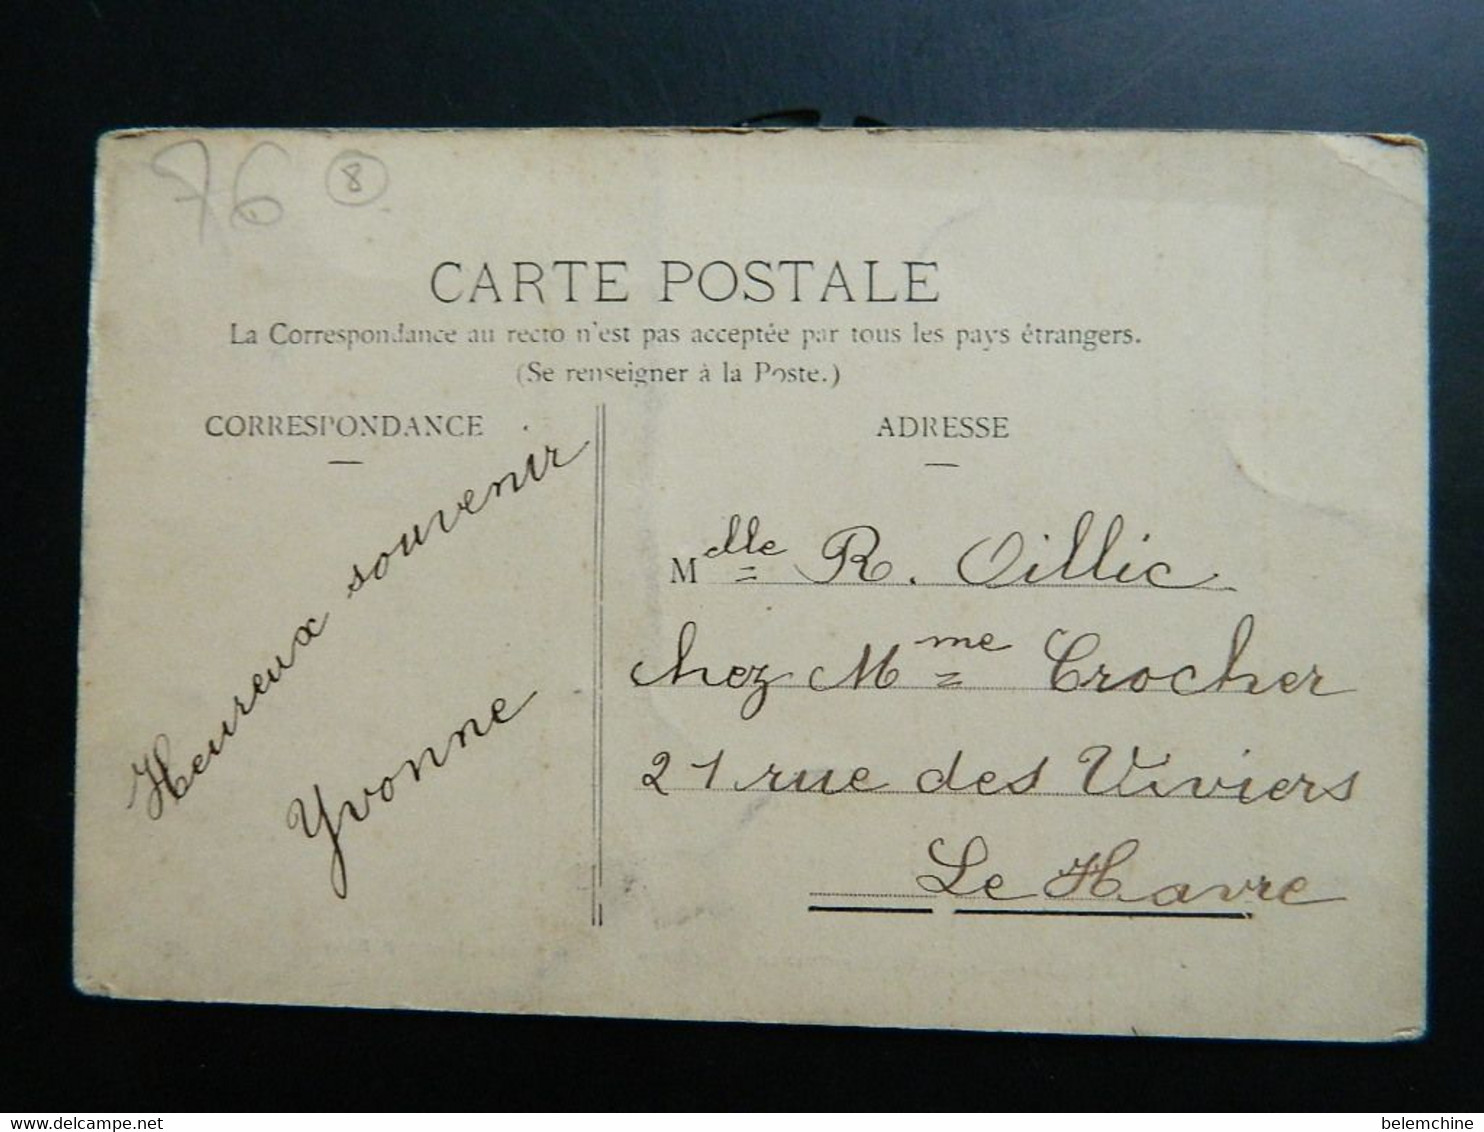 76 8
CARTE POSTALE
La Correspondance au recto n'est pas acceptée par tous les pays étrangers.
(Se renseigner à la Poste.)
CORRESPONDANCE
Heureux souvenir
Yvonne
ADRESSE
Melle R. Oillic
chez Mme Crocher
21 rue des Viviers
Le Havre
www.delcampe.net
belemchine